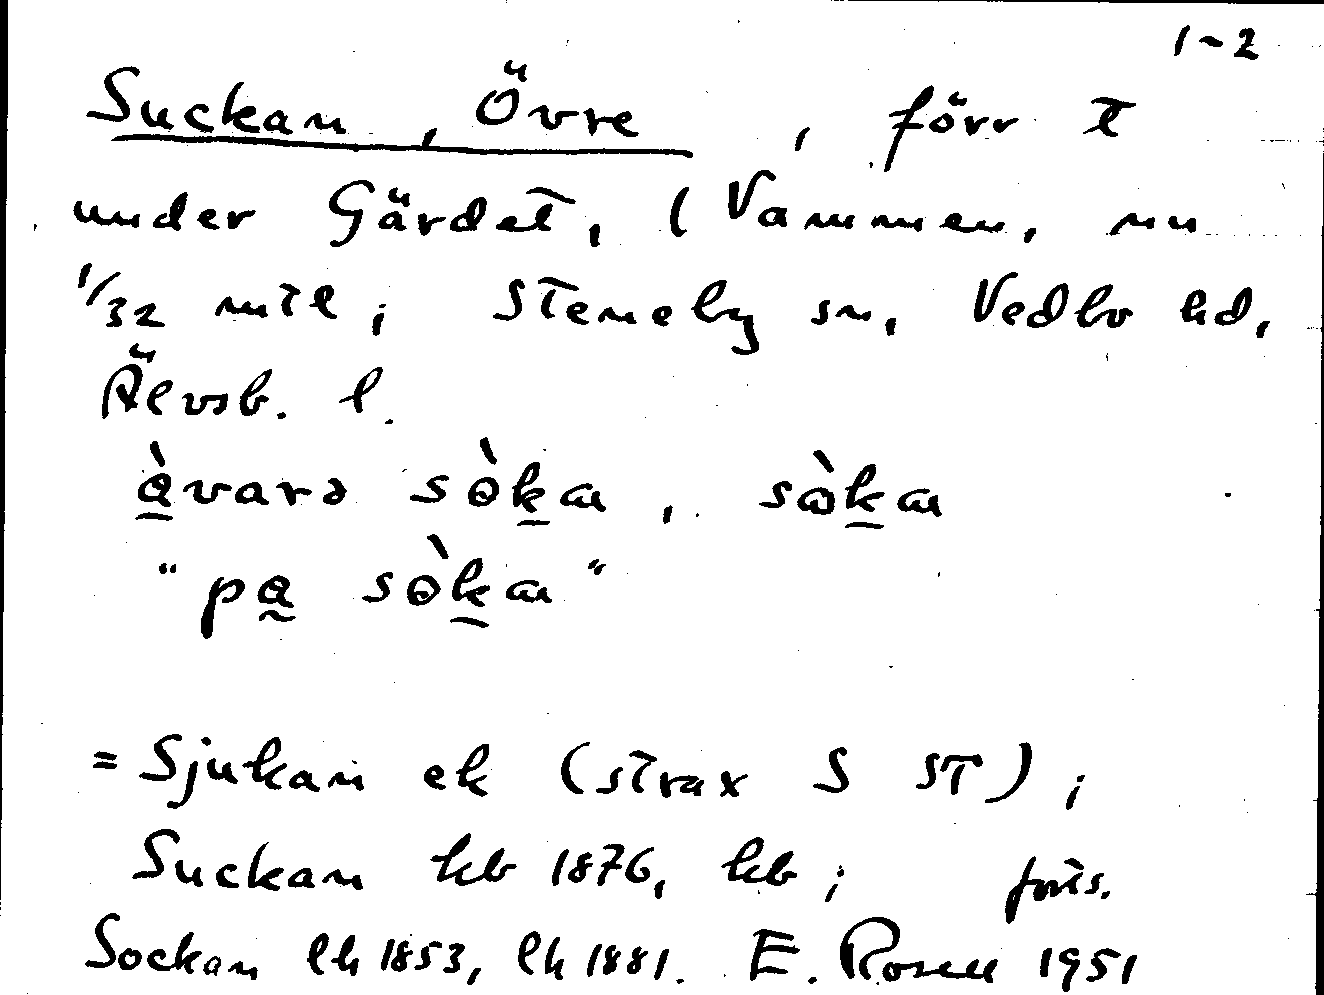 1-2
Suckan, Övre, förr t
under Gärdet, (Vammen, nu
1/32 mtl; Steneby sn, Vedbo hd,
Älvsb. l.
= Sjukan ek (strax S ST);
Suckan hb 1876, kb; forts.
Sockan lh 1853, lh 1881. E. Rosell 1951